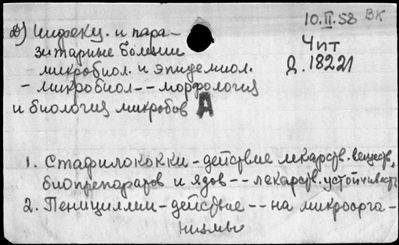 10.II.58 ВК
д) Инфекц. и пара-
зитарные болезни
Чит
Д.18221
- микробиол. и эпидемиол.
- микробиол - - морфология
и биология микробов А
1. Стафилококки - действие лекарств. веществ,
биопрепаратов и ядов - - лекарств. устойчивость
2. Пенициллин - действие - - на микроорга-
низмы